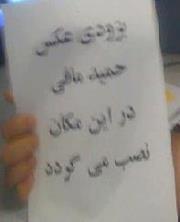 بزودی عکس
حمید مافی
در این مکان
نصب می گردد